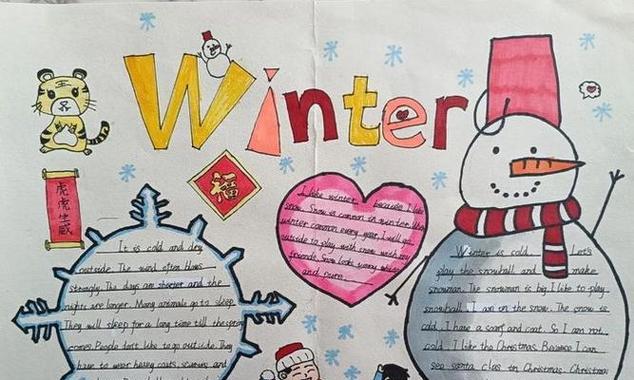 Winter
虎虎生威
福
It is cold and dry
outside. The wind often blows
strongly. The days are shorter and the
nights are longer. Many animals go to sleep.
They will sleep for a long time till the spring
comes. People don't like to go outside. They
have to wear heavy coats, scarves and
I like winter, because I like
snow. Snow is common in winter. Like
winter common every year. I will go
outside to play with snow with my
friends. Snow looks very white
and pure
Winter is cold. Let's
play the snowball and make
snowman. The snowman is big. I like to play
snowball. I am on the snow. The snow is
cold. I have a scarf and coat. So I am not
cold. I like the Christmas. Because I can
see santa claus in Christmas. Christmas